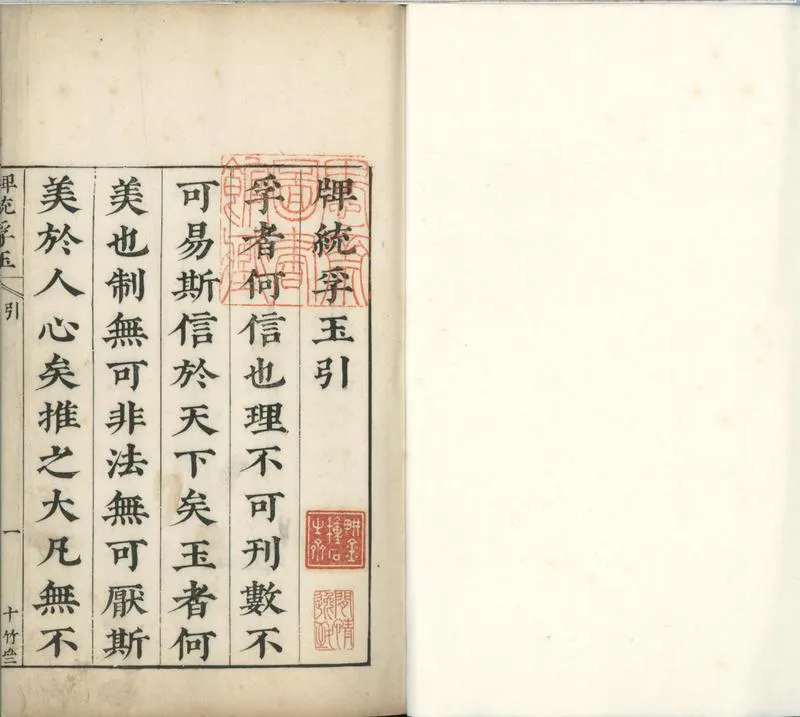 牌統孚玉引
孚者何信也理不可刊數不
可易斯信於天下矣玉者何
美也制無可非法無可厭斯
美於人心矣推之大凡無不
牌統孚玉
引
一
十竹